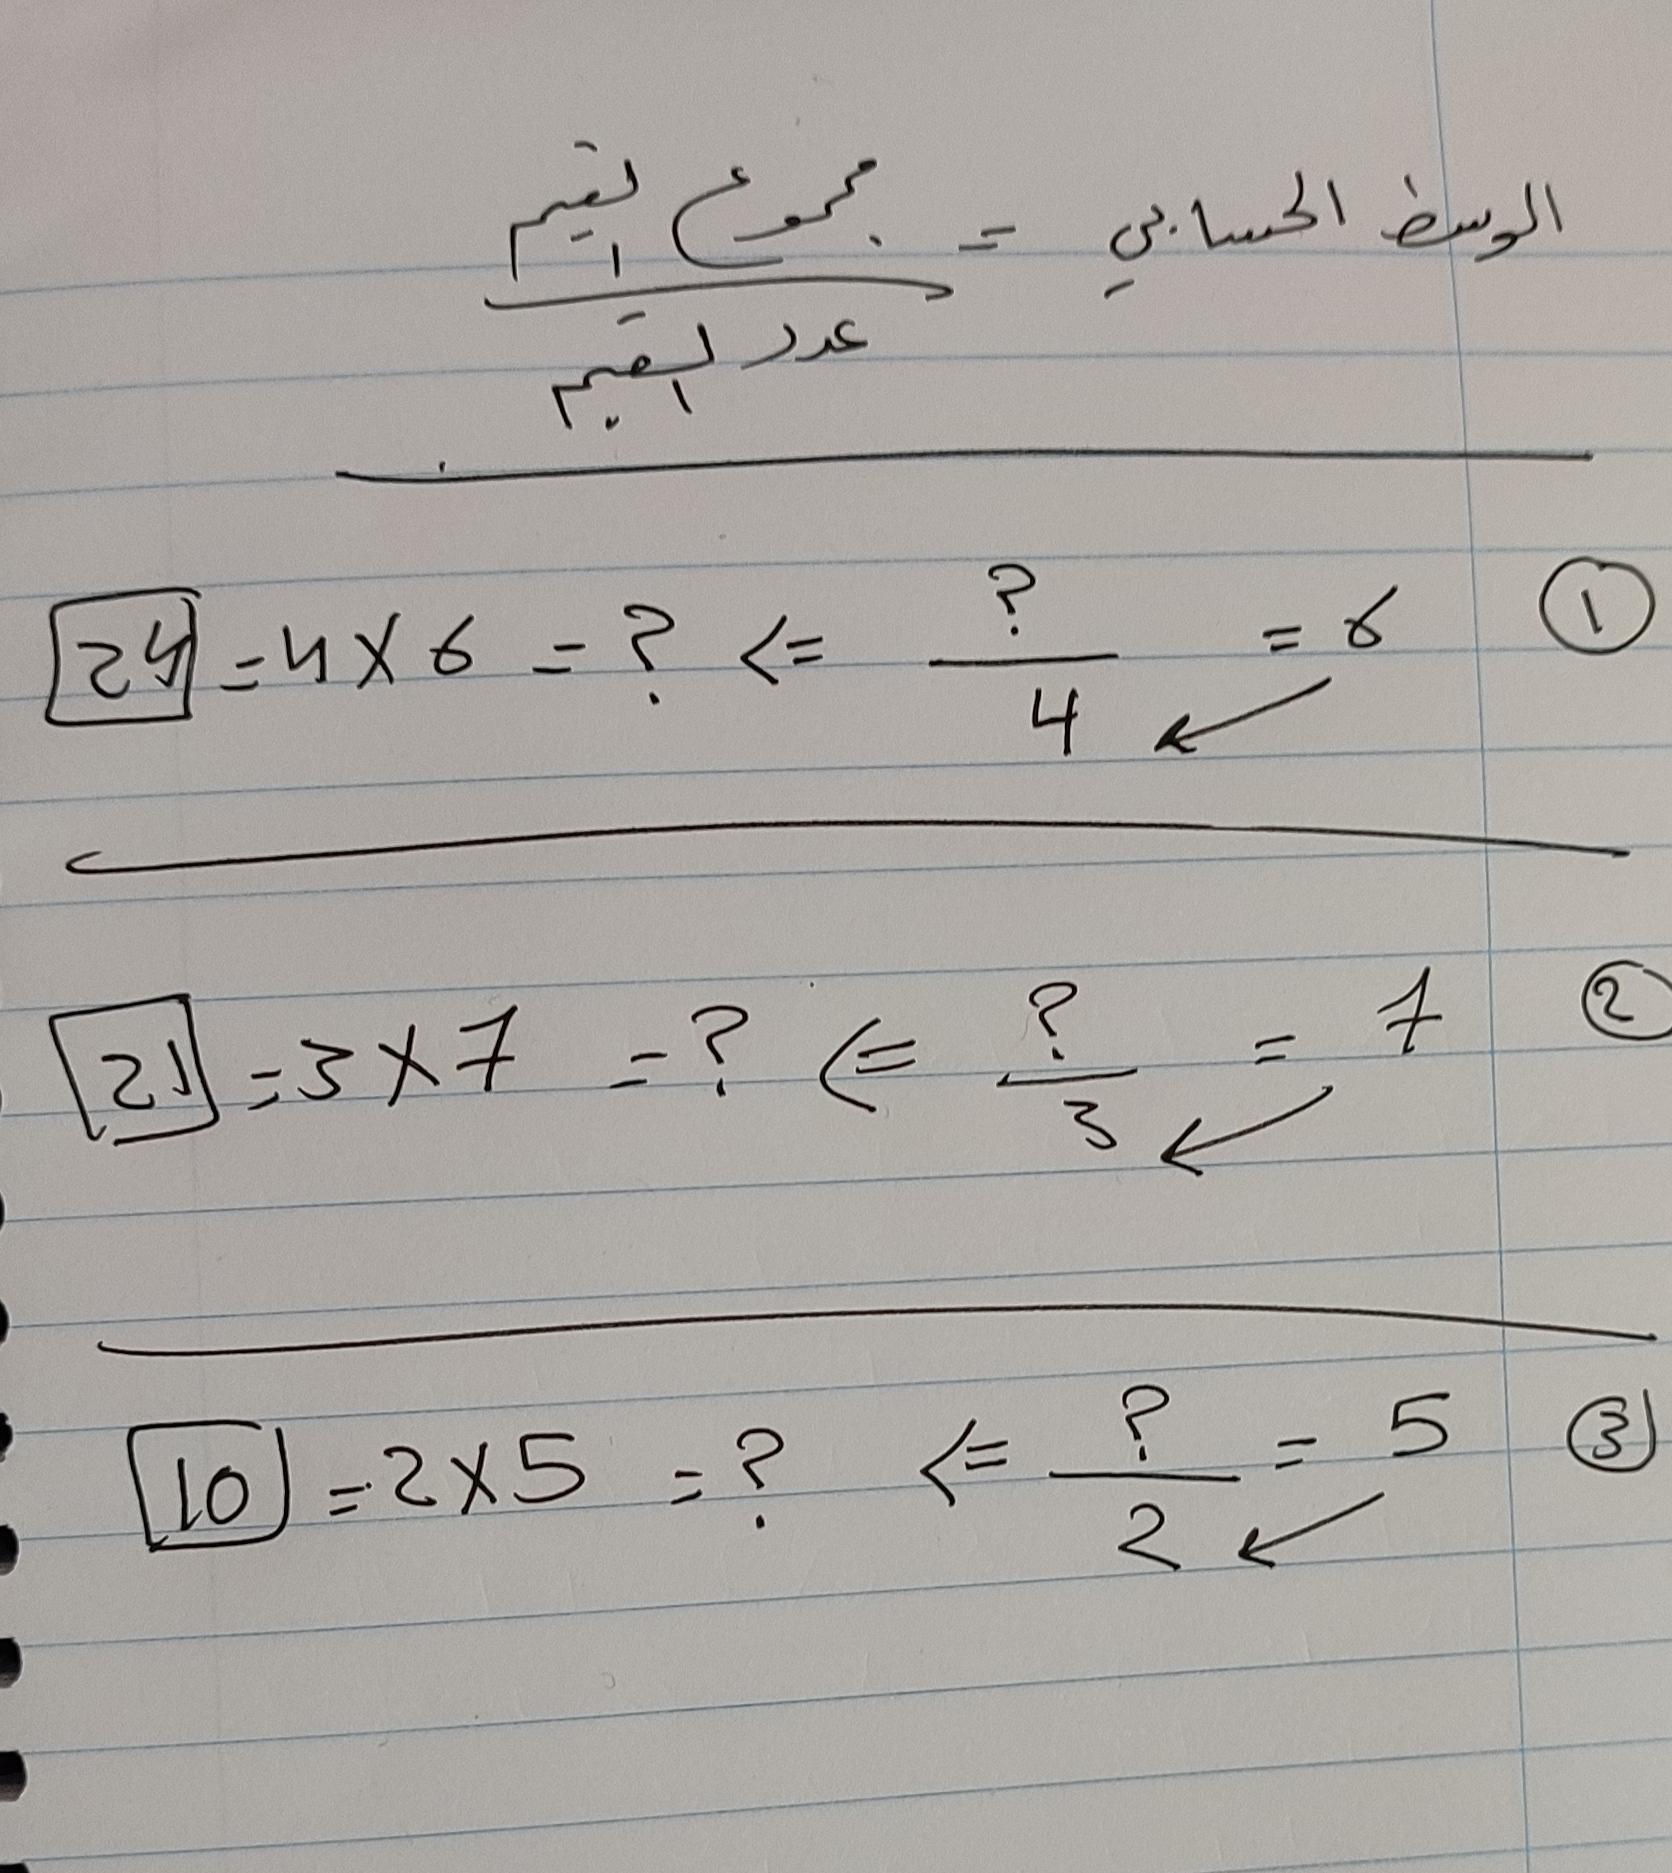 الوسط الحسابي = مجموع القيم
عدد القيم
① 6 = ?/4 => ? = 6 × 4 = 24
② 7 = ?/3 => ? = 7 × 3 = 21
③ 5 = ?/2 => ? = 5 × 2 = 10